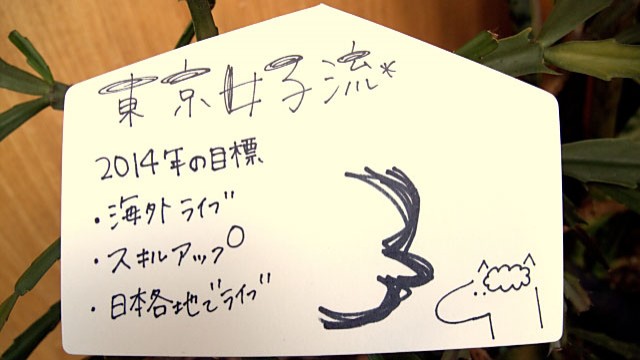 東京女子流*
2014年の目標
・海外ライブ
・スキルアップ
・日本各地でライブ